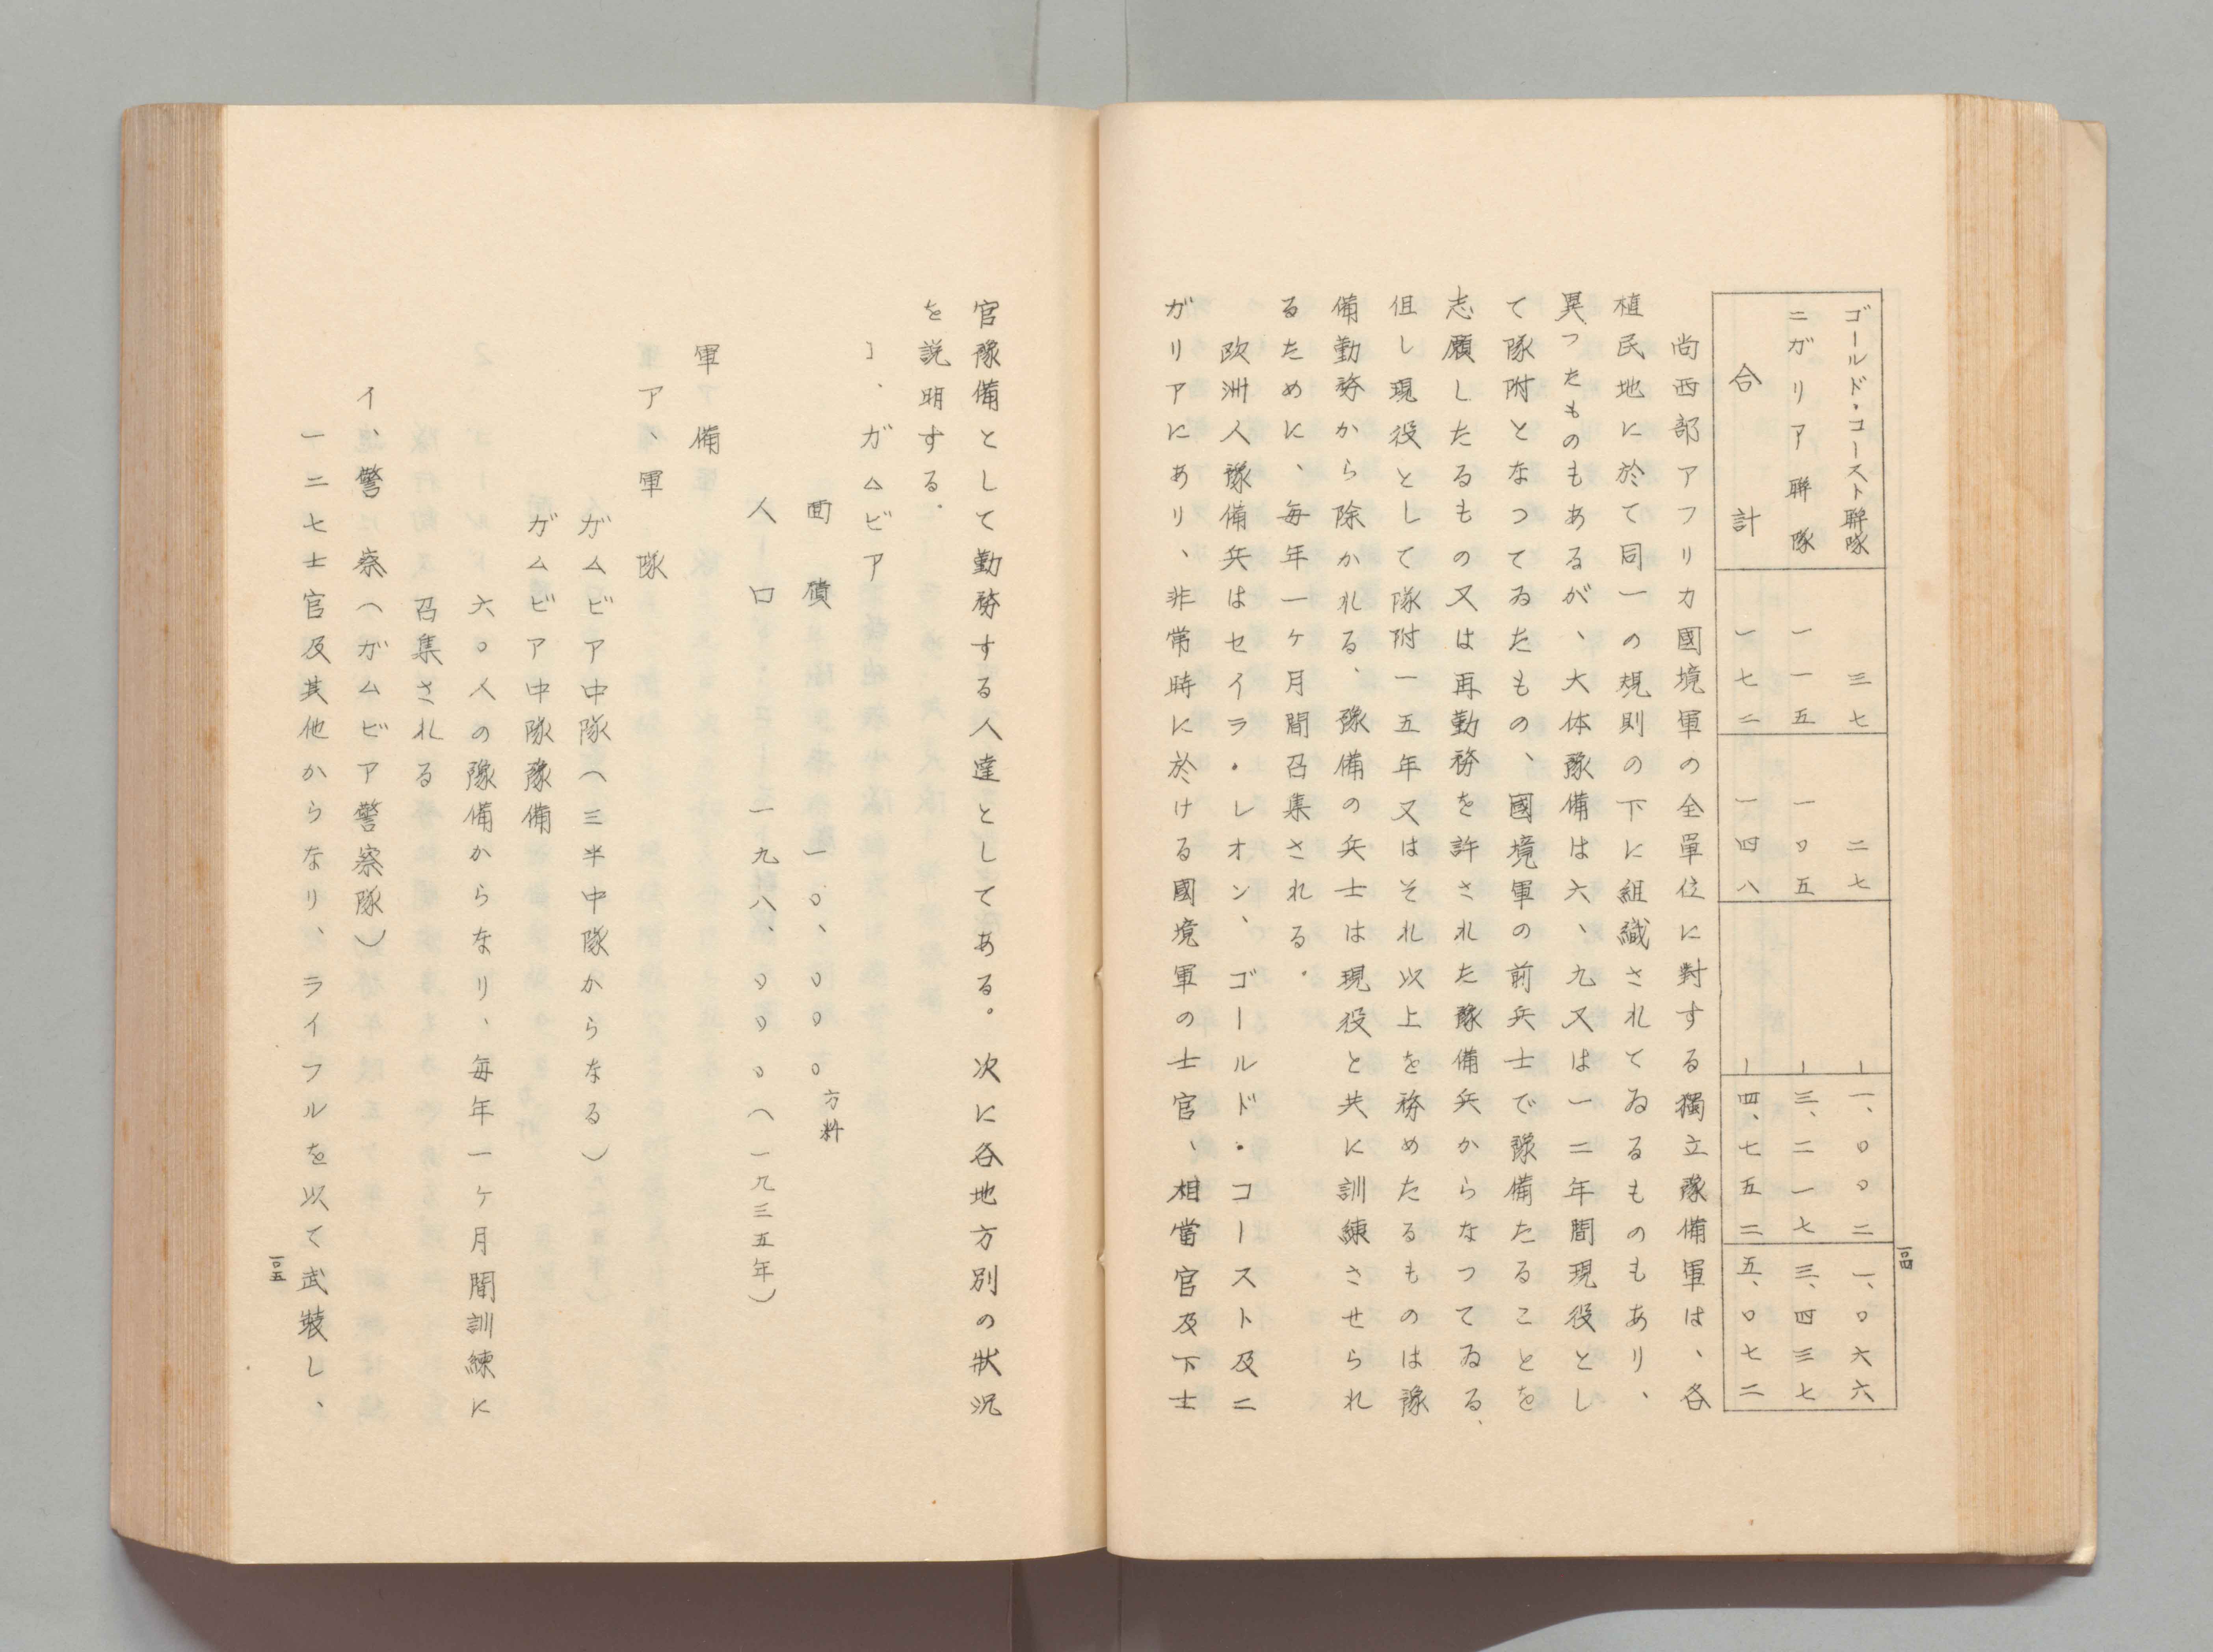 一〇四
ゴールド・コースト聯隊 三七 二七 ー 一、〇〇二 一、〇六六
ニガリア聯隊 一一五 一〇五 ー 三、二一七 三、四三七
合計 一七二 一四八 ー 四、七五二 五、〇七二
尚西部アフリカ國境軍の全單位に對する獨立豫備軍は、各
植民地に於て同一の規則の下に組織されてゐるものもあり、
異つたものもあるが、大体豫備は六、九又は一二年間現役とし
て隊附となつてゐたもの、國境軍の前兵士で豫備たることを
志願したるもの又は再勤務を許された豫備兵からなつてゐる、
伹し現役として隊附一五年又はそれ以上を務めたるものは豫
備勤務から除かれる、豫備の兵士は現役と共に訓練させられ
るために、毎年一ヶ月間召集される.
欧洲人豫備兵はセイラ・レオン、ゴールド・コースト及ニ
ガリアにあり、非常時に於ける國境軍の士官、相當官及下士
官豫備として勤務する人達としてある。次に各地方別の狀況
を説明する.
1、ガムビア
面積 一〇、〇〇〇方粁
人口 一九八、〇〇〇(一九三五年)
軍備
ア、軍隊
ガムビア中隊(三半中隊からなる)
ガムビア中隊豫備
六〇人の豫備からなり、毎年一ヶ月間訓練に
召集される
イ、警察(ガムビア警察隊)
一二七士官及其他からなり、ライフルを以て武裝し、
一〇五